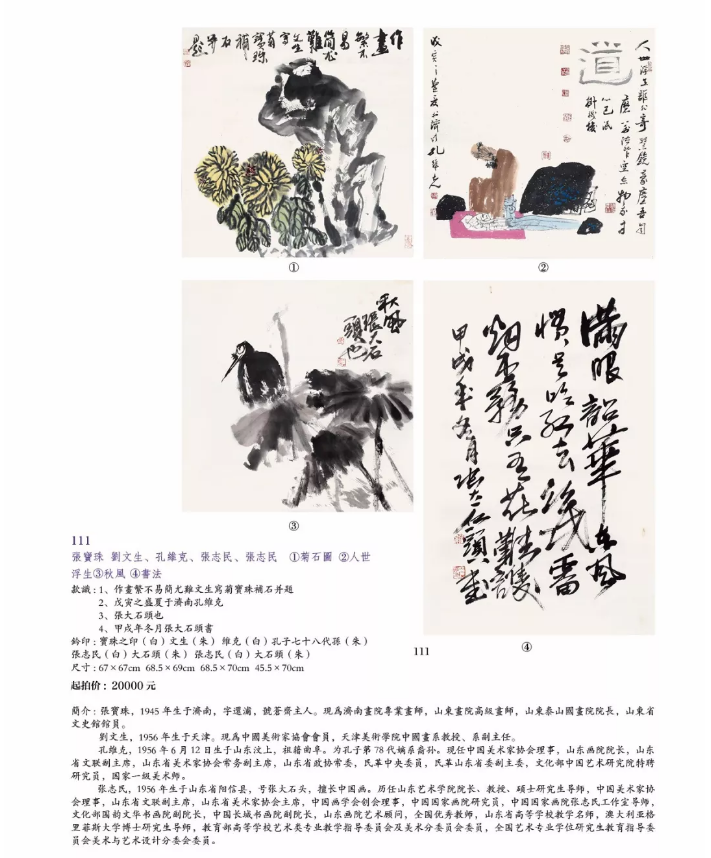 作
畫
繁不
易
簡尤
難
文生
寫
菊
寶珠
補
石
并
題
道
①
②
秋風
張大石
頭也
滿眼韶華東風
慣是吹紅去幾番
烟不霧只有花難護
甲戌年冬月張大石頭書
③
④
111
111
張寶珠 劉文生、孔維克、張志民、張志民 ①菊石圖 ②人世
浮生③秋風 ④書法
款識:1、作畫繁不易簡尤難文生寫菊寶珠補石并題
2、戊寅之盛夏于濟南孔維克
3、張大石頭也
4、甲戌年冬月張大石頭書
鈐印:寶珠之印(白)文生(朱) 維克(白)孔子七十八代孫(朱)
張志民(白)大石頭(朱) 張志民(白)大石頭(朱)
尺寸:67×67cm 68.5×69cm 68.5×70cm 45.5×70cm
起拍价:20000 元
簡介:張寶珠,1945 年生于濟南,字還浦,號蒼齋主人。現爲濟南畫院專業畫師,山東畫院高級畫師,山東泰山國畫院院長,山東省
文史館館員。
劉文生,1956 年生于天津。現爲中國美術家協會會員,天津美術學院中國畫系教授、系副主任。
孔維克,1956 年 6 月 12 日生于山东汶上,祖籍曲阜。为孔子第 78 代嫡系裔孙。现任中国美术家协会理事,山东画院院长,山东
省文联副主席,山东省美术家协会常务副主席,山东省政协常委,民革中央委员,民革山东省委副主委,文化部中国艺术研究院特聘
研究员,国家一级美术师。
张志民,1956 年生于山东省阳信县,号张大石头,擅长中国画。历任山东艺术学院院长、教授、硕士研究生导师,中国美术家协
会理事,山东省文联副主席,山东省美术家协会主席,中国画学会创会理事,中国国家画院研究员,中国国家画院张志民工作室导师,
文化部国韵文华书画院副院长,中国长城书画院副院长,山东画院艺术顾问,全国优秀教师,山东省高等学校教学名师,澳大利亚格
里菲斯大学博士研究生导师,教育部高等学校艺术类专业教学指导委员会及美术分委员会委员,全国艺术专业学位研究生教育指导委
员会美术与艺术设计分委会委员。